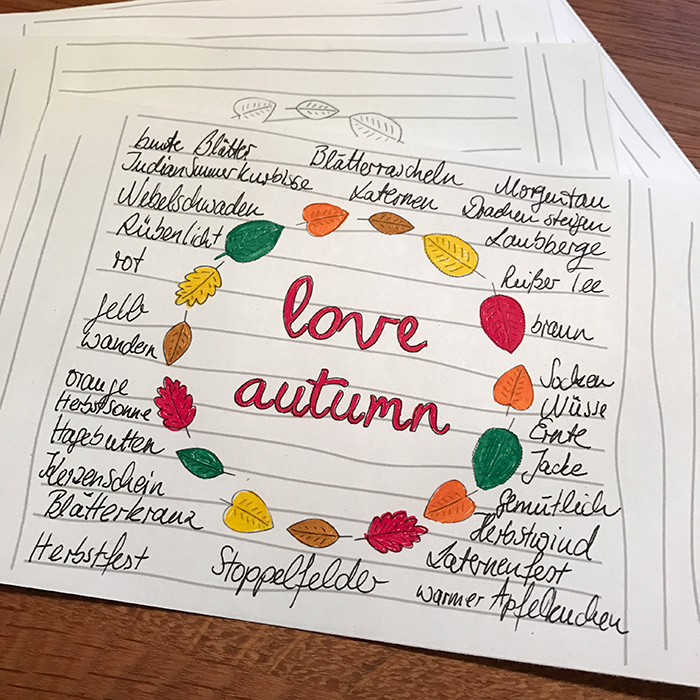 bunte Blätter Blätterrascheln Morgentau
Indian Summer Kürbisse Laternen Drachen steigen
Nebelschwaden Laubberge
Rübenlicht
rot heißer Tee
love
gelb braun
wandern
autumn
orange Socken
Herbstsonne Nüsse
Hagebutten Ernte
Jacke
Kerzenschein gemütlich
Blätterkranz Herbstwind
Laternenfest
Herbstfest Stoppelfelder warmer Apfelkuchen